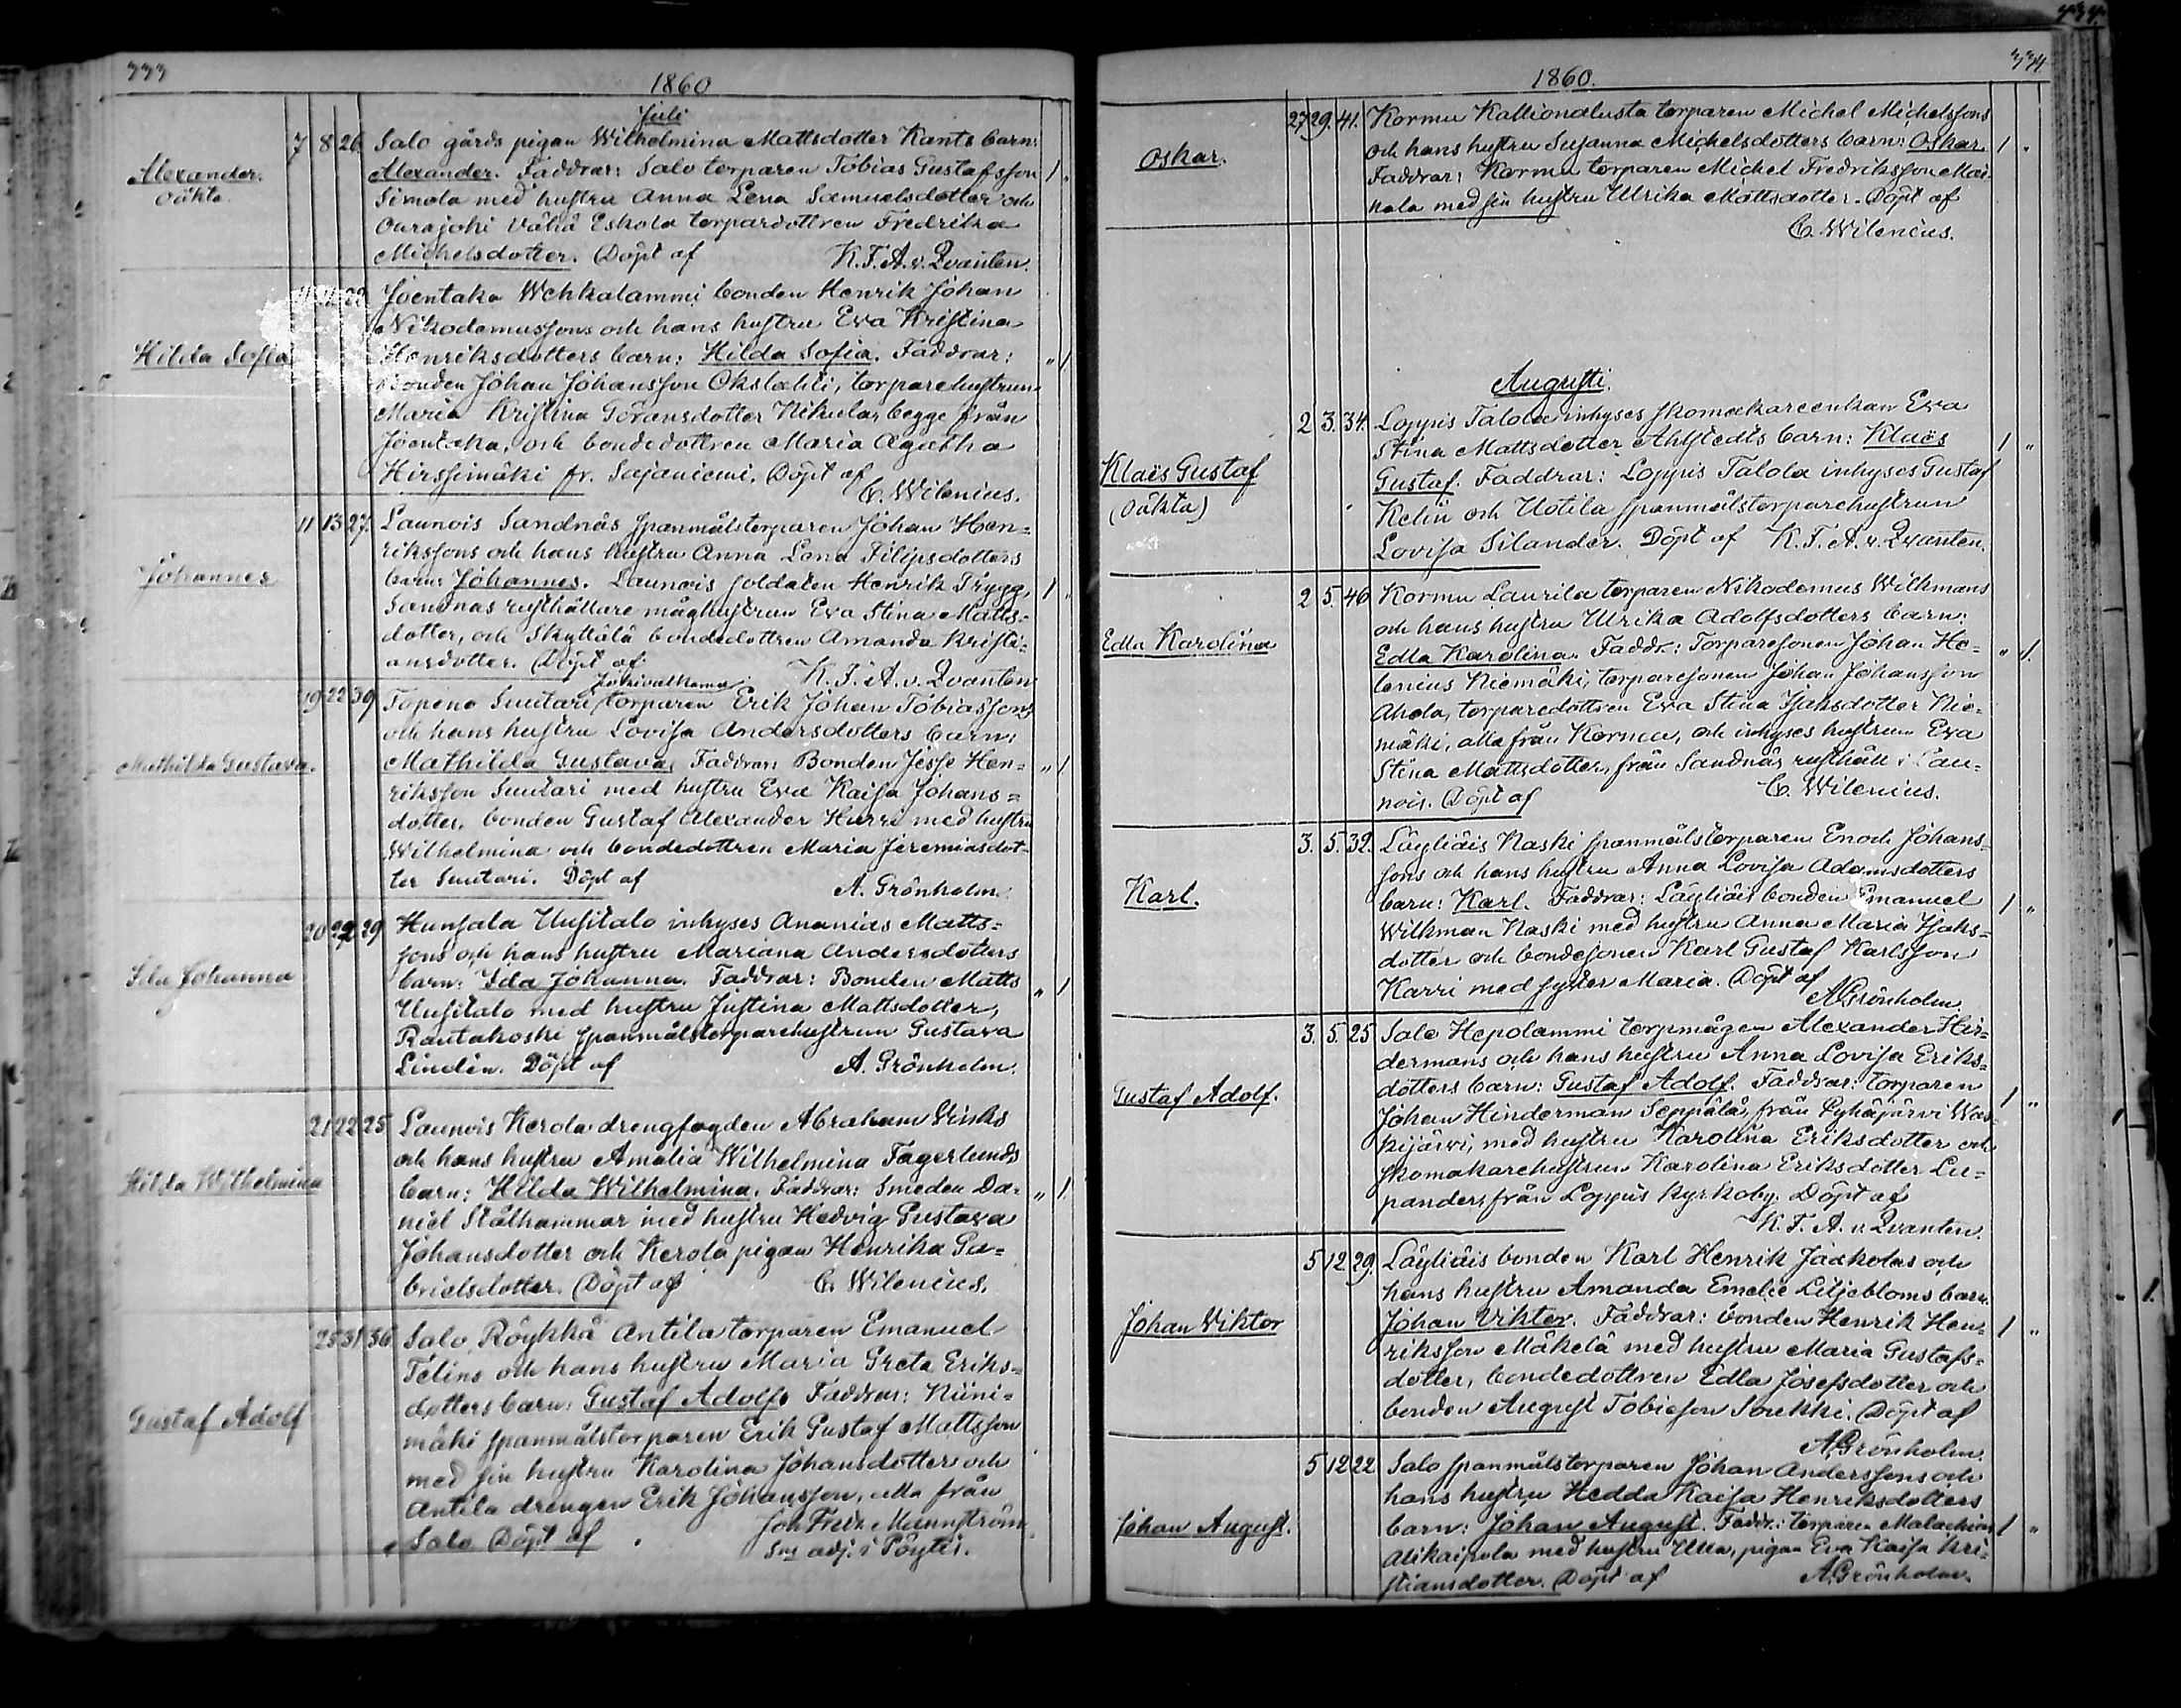 333
1860
Juli
7 8 26. Salo gårds pigan Wilhelmina Mattsdotter Kants barn:
Alexander. oäkta.
Alexander. Faddrar: Salo torparen Tobias Gustafsson 1 "
Simola med hustru Anna Lena Samuelsdotter och
Ourajoki Vähä Eskola torpardottren Fredrika
Michelsdotter. Döpt af K. F. A. v. Qvanten.
22 Joentaka Wehkalammi bonden Henrik Johan
Nikodemussons och hans hustru Eva Kristina
Hilda Sofia
Henriksdotters barn: Hilda Sofia. Faddrar: " 1
Bonden Johan Johansson Okslahti, torparehustrun
Maria Kristina Göransdotter Nikula, begge från
Joentaka, och bondedottren Maria Agatha
Hirssimäki fr. Sajaniemi. Döpt af
C. Wilenius.
11 13 27. Launois Sandnäs spanmålstorparen Johan Hen=
rikssons och hans hustru Anna Lena Filipsdotters
Johannes
barn: Johannes. Launois soldaten Henrik Trygg, 1 "
Sandnäs rusthållare måghustrun Eva Stina Matts=
dotter, och Skyttälä bondedottren Amanda Kristi=
ansdotter. Döpt af K. F. A. v. Qvanten
19 22 39 Topeno Suutari torparen Erik Johan Tobiassons
och hans hustru Lovisa Andersdotters barn:
Mathilda Gustava.
Mathilda Gustava, Faddrar: Bonden Jesse Hen= " 1
riksson Suutari med hustru Eva Kaisa Johans=
dotter, bonden Gustaf Alexander Hurri med hustru
Wilhelmina och bondedottren Maria Jeremiasdot=
ter Suutari. Döpt af A. Grönholm.
20 22 29 Hunsala Uusitalo inhyses Ananias Matts=
sons och hans hustru Mariana Andersdotters
Ida Johanna
barn: Ida Johanna. Faddrar: Bonden Matts " 1
Uusitalo med hustru Justina Mattsdotter,
Rautakoski spanmålstorparehustrun Gustava
Lindén. Döpt af A. Grönholm.
21 22 25 Launois Kerola drengfogden Abraham Grisks
och hans hustru Amalia Wilhelmina Fagerlunds
Hilda Wilhelmina
barn: Hilda Wilhelmina. Faddrar: Smeden Da= " 1.
niel Stålhammar med hustru Hedvig Gustava
Johansdotter och Kerola pigan Henrika Ga=
brielsdotter. Döpt af C. Wilenius.
25 31 36 Salo Röykkä Antila torparen Emanuel
Telins och hans hustru Maria Greta Eriks=
Gustaf Adolf
dotters barn: Gustaf Adolf. Faddrar: Niini=
mäki spanmålstorparen Erik Gustaf Mattsson
med sin hustru Karolina Johansdotter och
Antila drengen Erik Johansson, alla från
Salo Döpt af Joh. Fredr. Mannström
Sns adj. i Pöytis.
334.
1860.
27 29. 41. Kormu Kallionalusta torparen Michel Michelssons
Oskar.
och hans hustru Susanna Michelsdotters barn: Oskar. 1 "
Faddrar: Kormu torparen Michel Fredriksson Mai=
nala med sin hustru Ulrika Mattsdotter. Döpt af
C. Wilenius.
Augusti.
2 3. 34. Loppis Talola inhyses skomakareenkan Eva
Stina Mattsdotter Ahlstedts barn: Klaës 1 "
Klaës Gustaf
(oäkta)
Gustaf. Faddrar: Loppis Talola inhyses Gustaf
Kelin och Uotila spanmålstorparehustrun
Lovisa Silander. Döpt af K. F. A. v. Qvanten.
2 5. 46 Kormu Laurila torparen Nikodemus Wilkmans
och hans hustru Ulrika Adolfsdotters barn:
Edla Karolina
Edla Karolina. Faddr.: Torparesonen Johan He= " 1.
lenius Niemäki, torparesonen Johan Johansson
Ahola, torparedottren Eva Stina Isaksdotter Nie=
mäki, alla från Kormu, och inhyses hustrun Eva
Stina Mattsdotter, från Sandnäs rusthåll i Lau=
nois. Döpt af C. Wilenius.
3. 5. 32. Läyliäis Naski spanmålstorparen Enoch Johans=
sons och hans hustru Anna Lovisa Adamsdotters
Karl.
barn: Karl. Faddrar: Läyliäis bonden Emanuel 1 "
Wilkman Naski med hustru Anna Maria Isaks=
dotter och bondesonen Karl Gustaf Karlsson
Karri med syster Maria. Döpt af
A. Grönholm.
3. 5. 25 Salo Hepolammi torpmågen Alexander Hin=
dermans och hans hustru Anna Lovisa Eriks=
Gustaf Adolf.
dotters barn: Gustaf Adolf. Faddrar: torparen 1 "
Johan Hinderman Seppälä, från Pyhäjärvi Was=
kijärvi, med hustru Karolina Eriksdotter och
skomakarehustrun Karolina Eriksdotter Lu=
pander, från Loppis kyrkoby. Döpt af
K. F. A. v. Qvanten.
5 12 29. Läyliäis bonden Karl Henrik Jaakolas och
hans hustru Amanda Emelie Liljebloms barn.
Johan Viktor
Johan Viktor. Faddrar: bonden Henrik Hen= 1 "
riksson Mäkelä med hustru Maria Gustafs=
dotter, bondedottren Edla Josefsdotter och
bonden August Tobieson Soukki. Döpt af
A. Grönholm.
5 12 22 Salo spanmålstorparen Johan Anderssons och
hans hustru Hedda Kaisa Henriksdotters
Johan August.
barn: Johan August. Faddr.: torparen Malachias 1 "
Alikaipola med hustru Ulla, pigan Eva Kaisa Kri=
stiansdotter. Döpt af A. Grönholm.